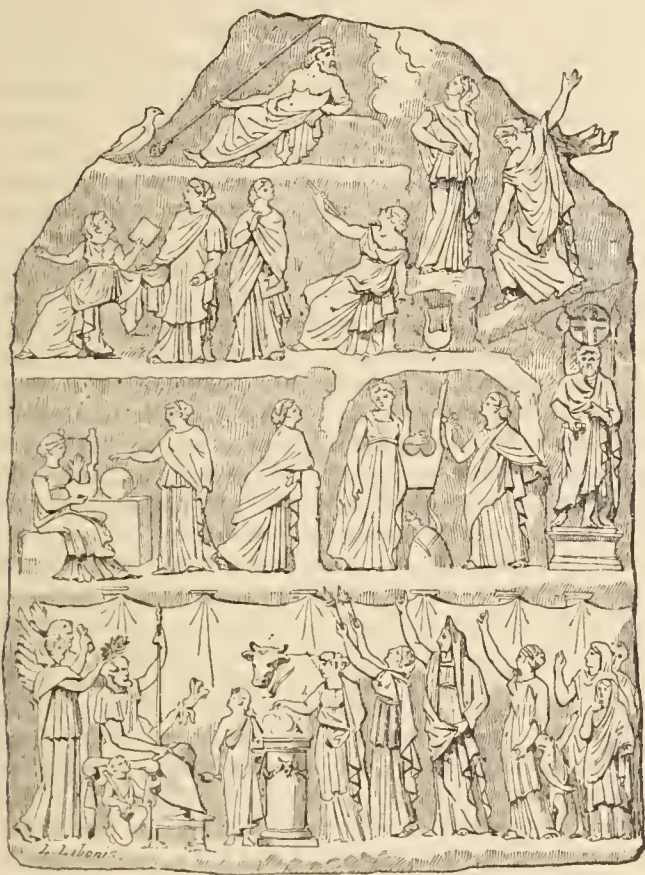 L. Libonis.